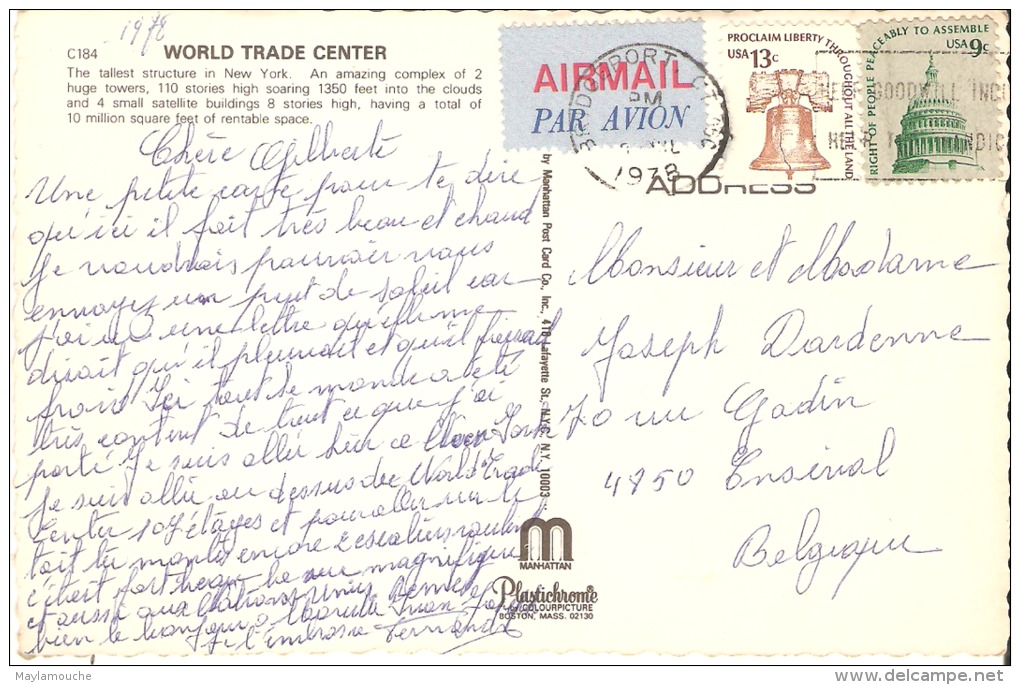 1978
C184 WORLD TRADE CENTER
The tallest structure in New York. An amazing complex of 2
huge towers, 110 stories high soaring 1350 feet into the clouds
and 4 small satellite buildings 8 stories high, having a total of
10 million square feet of rentable space.
Chère Gilberte
Une petite carte pour te dire
qu'ici il fait très beau et chaud
Je voudrais pouvoir vous
envoyez un peut de soleil car
j'ai une lettre qu'elle me
disait qu'il pleuvait et qu'il faisait
froid Ici tout le monde a été
très content de tout ce que j'ai
porté Je suis allée sur ce York
Je suis allée au dessus du World Trade
Center 107 étages et pour aller sur le
toit tu monte encore 2 escaliers roulant
c'était fort beau la vue magnifique
et aussi aux Nations Unis
bien le bonjour à
Je t'embrasse Fernande
by Manhattan Post Card Co., Inc., 418 Lafayette St., N.Y.C. N.Y. 10003
MANHATTAN
Plastichrome®
by COLOURPICTURE
BOSTON, MASS. 02130
AIRMAIL
PAR AVION
BRIDGEPORT, CT
PM
1978
PROCLAIM LIBERTY THROUGHOUT ALL THE LAND
USA 13c
RIGHT OF PEOPLE PEACEABLY TO ASSEMBLE
USA 9c
GOODWILL
ADDRESS
Monsieur et Madame
Joseph Dardenne
70 rue Godin
4850 Ensival
Belgique
Maylamouche
delcampe.net